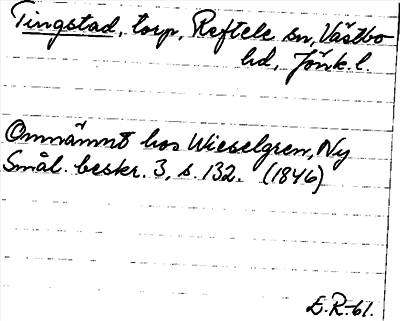 Tingstad, torp, Reftele sn, Västbo
hd, Jönk. l.
Omnämnt hos Wieselgren, Ny
Smål. beskr. 3, s. 132. (1846)
E.R.-61.